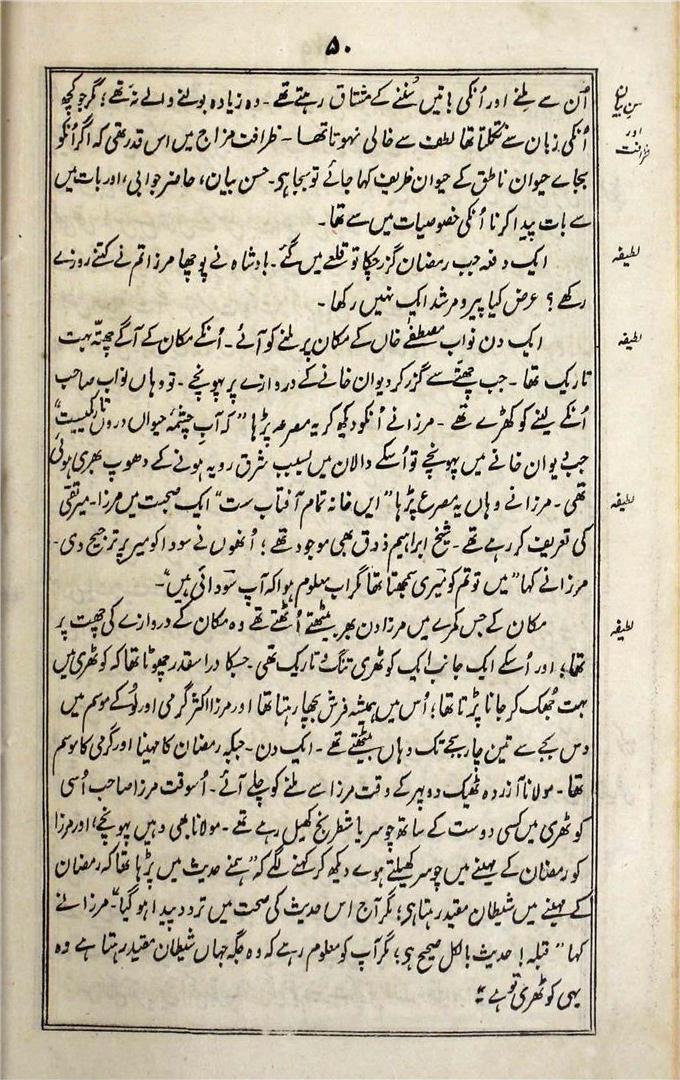 ۵۰
اُن سے ملنے اور اُنکی باتیں سُننے کے مشتاق رہتے تھے ۔ وہ زیادہ بولنے والے نہ تھے؛ مگر جو کچھ
حسن بیان
اور
ظرافت
اُنکی زبان سے نکلتا تھا لطف سے خالی نہوتا تھا ۔ ظرافت مزاج میں اس قدر تھی کہ اگر اُنکو
بجاے حیوان ناطق کے حیوان ظریف کہا جائے تو بجا ہی ۔ حسن بیان، حاضر جوابی، اور بات میں
سے بات پیدا کرنا اُنکی خصوصیات میں سے تھا ۔
لطیفہ
ایک دفعہ جب رمضان گزر چکا تو قلعے میں گئے ۔ بادشاہ نے پوچھا مرزا تم نے کتنے روزے
رکھے ؟ عرض کیا پیر و مرشد ایک نہیں رکھا ۔
لطیفہ
ایک دن نواب مصطفےٰ خاں کے مکان پر ملنے کو آئے ۔ اُنکے مکان کے آگے چھتّہ بہت
تاریک تھا ۔ جب چھتّے سے گزر کر دیوان خانے کے دروازے پر پہونچے ۔ تو وہاں نواب صاحب
اُنکے لینے کو کھڑے تھے ۔ مرزا نے اُنکو دیکھ کر یہ مصرعہ پڑہا ”کہ آبِ چشمۂ حیواں درونِ تاریکیست“
جب دیوان خانے میں پہونچے تو اُسکے دالان میں بسبب شرق رویہ ہونے کے دھوپ بھری ہوئی
لطیفہ
تھی ۔ مرزا نے وہاں یہ مصرع پڑہا ”ایں خانہ تمام آفتاب ست“ ایک صحبت میں مرزا ۔ میر تقی
کی تعریف کر رہے تھے ۔ شیخ ابراہیم ذوق بھی موجود تھے؛ اُنھوں نے سودا کو میر پر ترجیح دی ۔
مرزا نے کہا ”میں تو تم کو میری سمجھتا تھا مگر اب معلوم ہوا کہ آپ سودائی ہیں“ ۔
لطیفہ
مکان کے جس کمرے میں مرزا دن بھر بیٹھتے اُٹھتے تھے وہ مکان کے دروازے کی چھت پر
تھا؛ اور اُسکے ایک جانب ایک کوٹھری تنگ و تاریک تھی ۔ جسکا در اسقدر چھوٹا تھا کہ کوٹھری میں
بہت جُھک کر جانا پڑتا تھا؛ اُس میں ہمیشہ فرش بچھا رہتا تھا اور مرزا اکثر گرمی اور لُو کے موسم میں
دس بجے سے تین چار بجے تک وہاں بیٹھتے تھے ۔ ایک دن ۔ جبکہ رمضان کا مہینا اور گرمی کا موسم
تھا ۔ مولانا آزردہ ٹھیک دوپہر کے وقت مرزا سے ملنے کو چلے آئے ۔ اُسوقت مرزا صاحب اُسی
کوٹھری میں کسی دوست کے ساتھ چوسر یا شطرنج کھیل رہے تھے ۔ مولانا بھی وہیں پہونچے، اور مرزا
کو رمضان کے مہینے میں چوسر کھیلتے ہوے دیکھ کر کہنے لگے کہ ”ہمنے حدیث میں پڑہا تھا کہ رمضان
کے مہینے میں شیطان مقید رہتا ہی؛ مگر آج اس حدیث کی صحت میں تردد پیدا ہو گیا“ ۔ مرزا نے
کہا ”قبلہ! حدیث بالکل صحیح ہی؛ مگر آپ کو معلوم رہے کہ وہ جگہ جہاں شیطان مقید رہتا ہے وہ
یہی کوٹھری تو ہے“